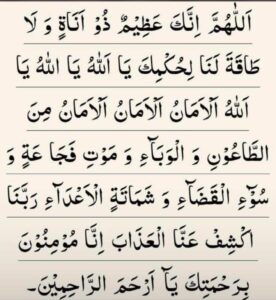 اَللّٰهُمَّ اِنَّكَ عَظِيْمٌ ذُوْ اَنَاةٍ وَ لَا
طَاقَةَ لَنَا لِحُكْمِكَ يَا اَللّٰهُ يَا اَللّٰهُ يَا
اَللّٰهُ اَلْاَمَانُ اَلْاَمَانُ اَلْاَمَانُ مِنَ
الطَّاعُوْنِ وَ الْوَبَآءِ وَ مَوْتِ فَجَا عَةٍ وَ
سُوْٓءِ الْقَضَآءِ وَ شَمَاتَةِ الْاَعْدَآءِ رَبَّنَا
اكْشِفْ عَنَّا الْعَذَابَ اِنَّا مُوْمِنُوْنَ
بِرَحْمَتِكَ يَآ اَرْحَمَ الرَّاحِمِيْنَ۔